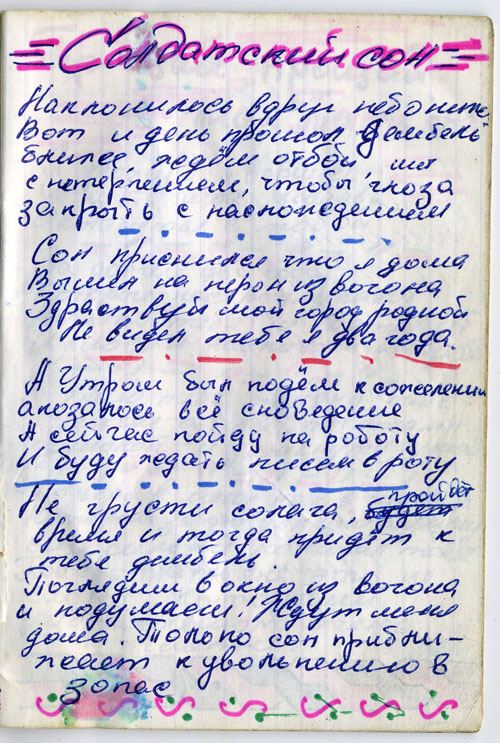 Солдатский сон
Наклонилось вдруг небо ниже
Вот и день прошол Дембель
ближе, ждём отбой мы
с нетерпением, чтобы глоза
закрыть с наслождением
Сон приснился что я дома
Вышел на перон из вогона
Здраствуй мой город родной
Не видел тебя я два года.
А Утром был подём к сожелению
аказалось всё сноведение
А сейчас пойду на роботу
И буду ждать писем в роту
Не грусти солага, пройдёт
время и тогда придёт к
тебе дембель.
Поглядиш в окно из вогона
и подумаеш! Ждут меня
дома. Только сон прибли-
жает к увольнению в
запас